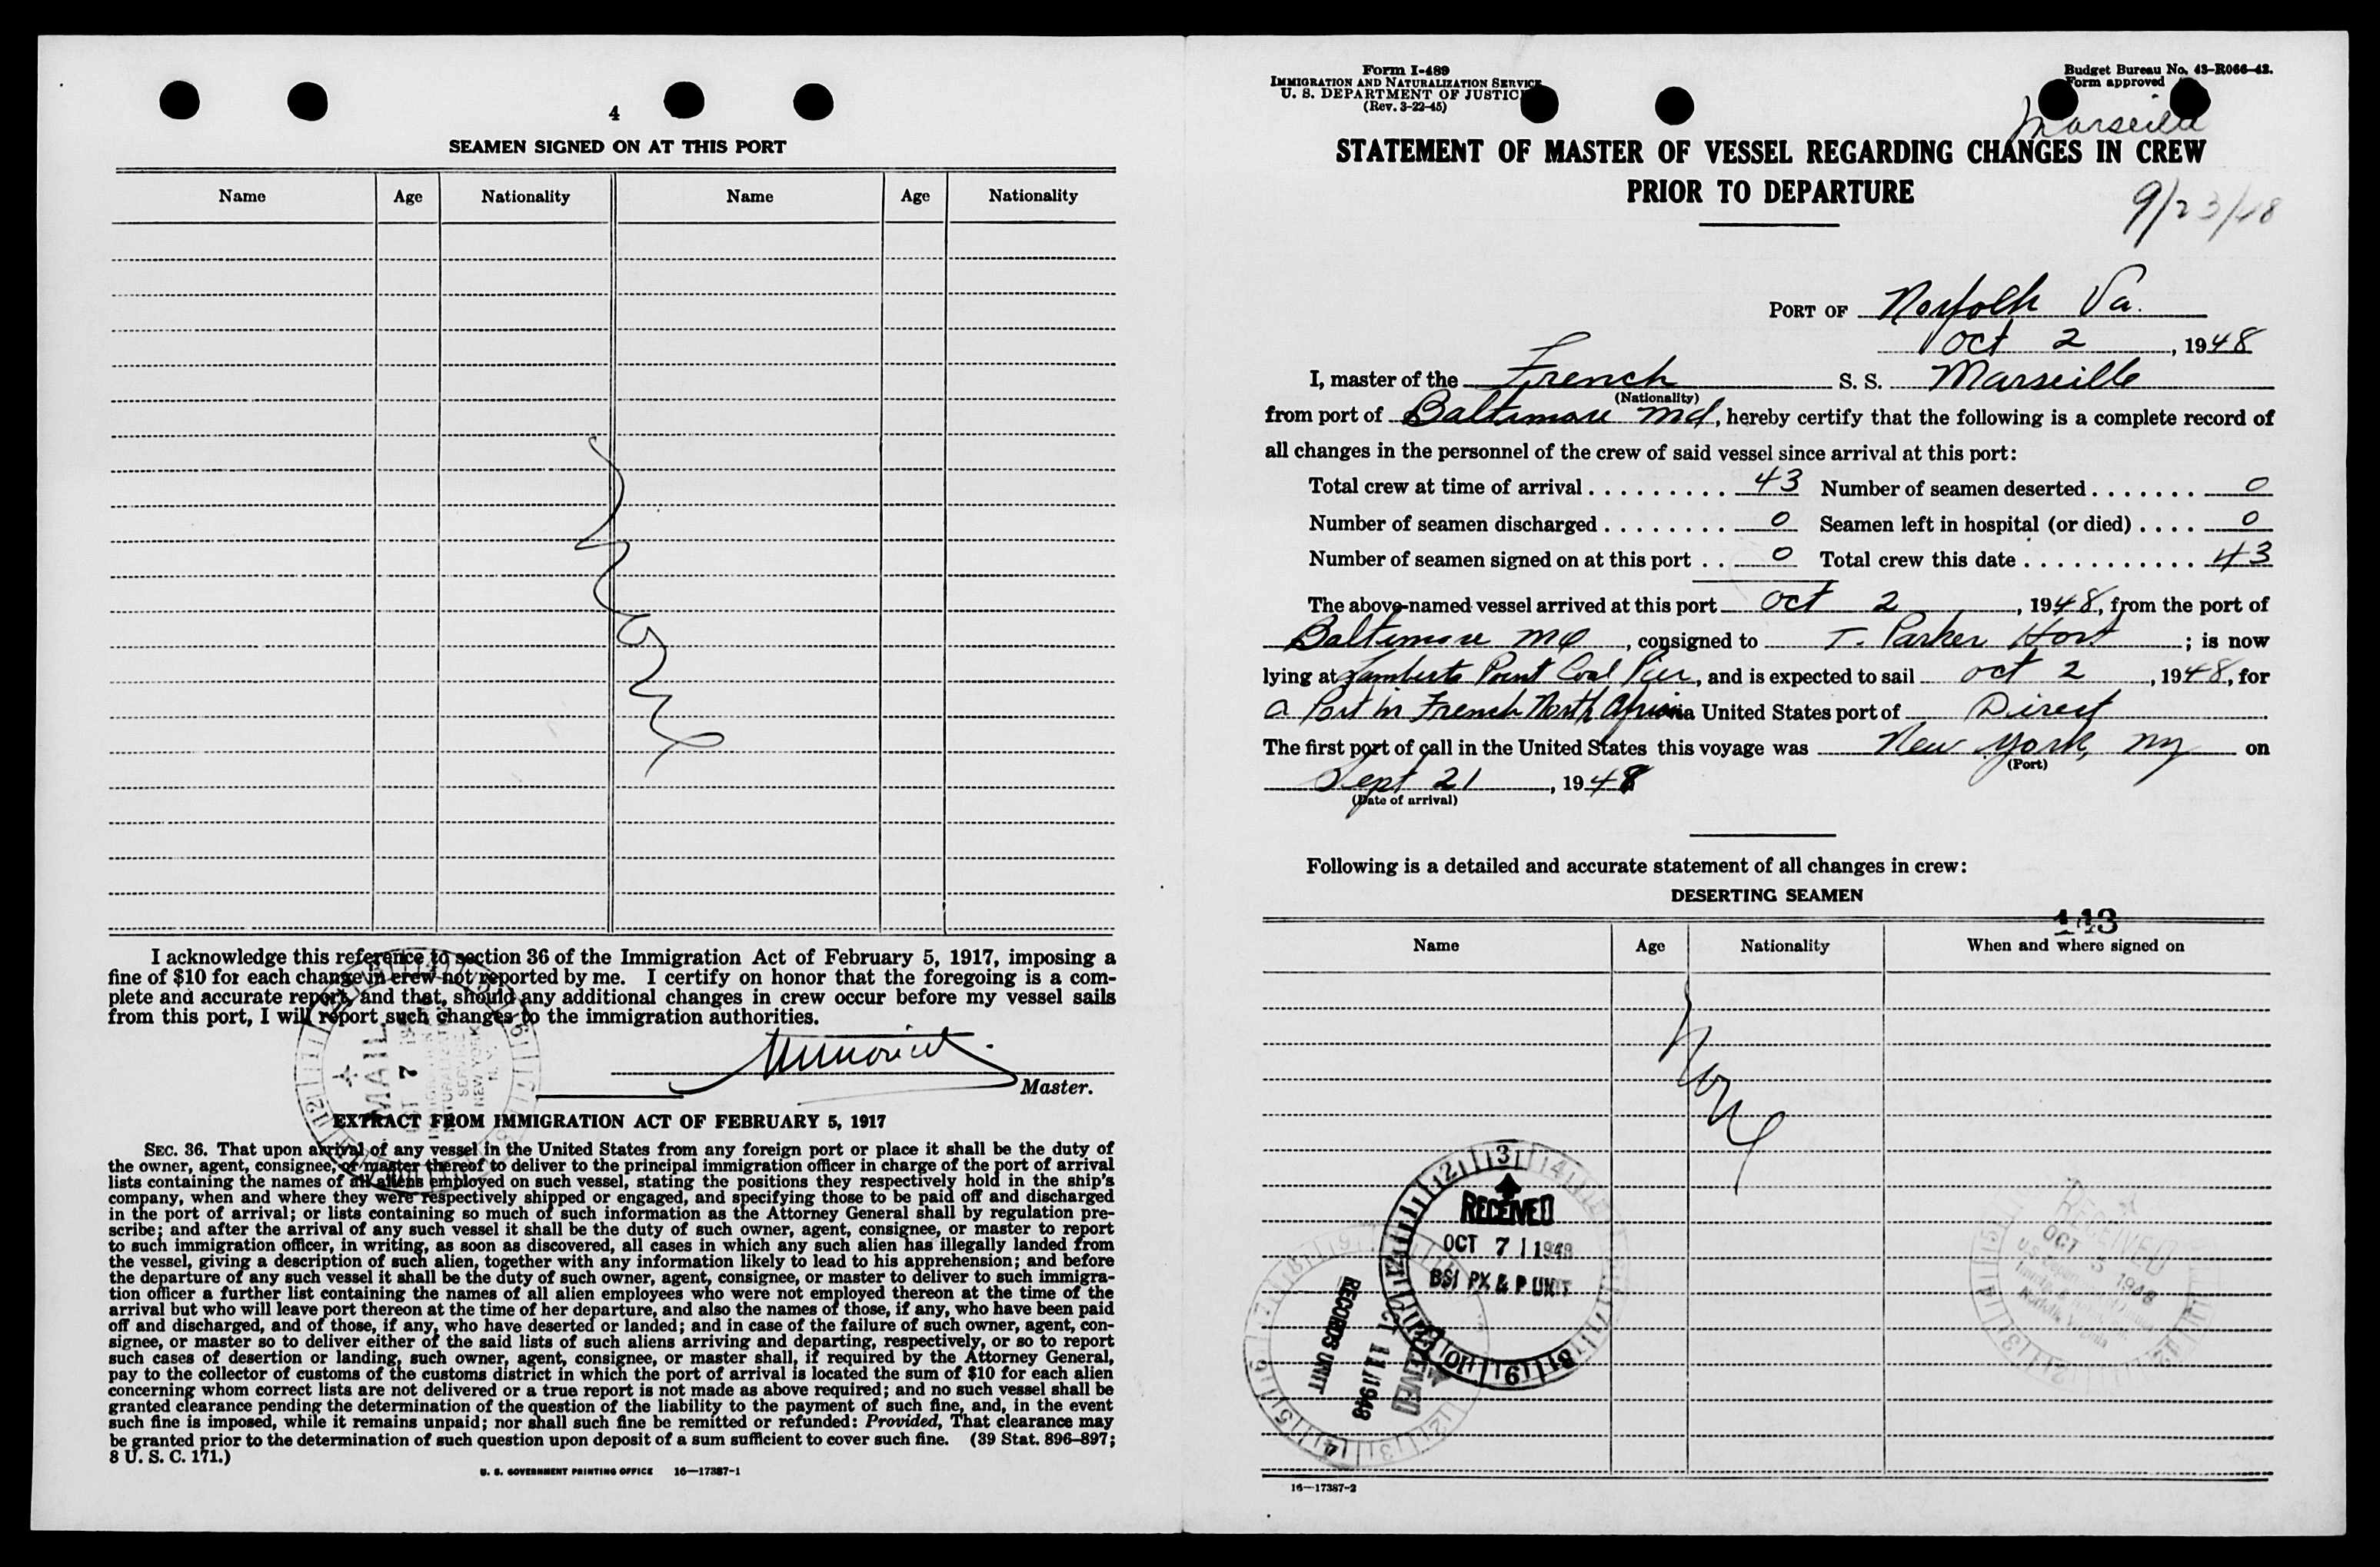 4
SEAMEN SIGNED ON AT THIS PORT
Name Age Nationality Name Age Nationality
None
I acknowledge this reference to section 36 of the Immigration Act of February 5, 1917, imposing a
fine of $10 for each change in crew not reported by me. I certify on honor that the foregoing is a com-
plete and accurate report, and that, should any additional changes in crew occur before my vessel sails
from this port, I will report such changes to the immigration authorities.
MAIL
7
NEW YORK
N. Y.
Master.
EXTRACT FROM IMMIGRATION ACT OF FEBRUARY 5, 1917
SEC. 36. That upon arrival of any vessel in the United States from any foreign port or place it shall be the duty of
the owner, agent, consignee, or master thereof to deliver to the principal immigration officer in charge of the port of arrival
lists containing the names of all aliens employed on such vessel, stating the positions they respectively hold in the ship's
company, when and where they were respectively shipped or engaged, and specifying those to be paid off and discharged
in the port of arrival; or lists containing so much of such information as the Attorney General shall by regulation pre-
scribe; and after the arrival of any such vessel it shall be the duty of such owner, agent, consignee, or master to report
to such immigration officer, in writing, as soon as discovered, all cases in which any such alien has illegally landed from
the vessel, giving a description of such alien, together with any information likely to lead to his apprehension; and before
the departure of any such vessel it shall be the duty of such owner, agent, consignee, or master to deliver to such immigra-
tion officer a further list containing the names of all alien employees who were not employed thereon at the time of the
arrival but who will leave port thereon at the time of her departure, and also the names of those, if any, who have been paid
off and discharged, and of those, if any, who have deserted or landed; and in case of the failure of such owner, agent, con-
signee, or master so to deliver either of the said lists of such aliens arriving and departing, respectively, or so to report
such cases of desertion or landing, such owner, agent, consignee, or master shall, if required by the Attorney General,
pay to the collector of customs of the customs district in which the port of arrival is located the sum of $10 for each alien
concerning whom correct lists are not delivered or a true report is not made as above required; and no such vessel shall be
granted clearance pending the determination of the question of the liability to the payment of such fine, and, in the event
such fine is imposed, while it remains unpaid; nor shall such fine be remitted or refunded: Provided, That clearance may
be granted prior to the determination of such question upon deposit of a sum sufficient to cover such fine. (39 Stat. 896–897;
8 U. S. C. 171.)
U. S. GOVERNMENT PRINTING OFFICE 16—17387-1
Form I-489
IMMIGRATION AND NATURALIZATION SERVICE
U. S. DEPARTMENT OF JUSTICE
(Rev. 3-22-45)
Budget Bureau No. 43-R066-42.
Form approved
Marseille
STATEMENT OF MASTER OF VESSEL REGARDING CHANGES IN CREW
PRIOR TO DEPARTURE
9/23/48
PORT OF Norfolk Va.
Oct 2, 1948
I, master of the French S. S. Marseille
(Nationality)
from port of Baltimore Md, hereby certify that the following is a complete record of
all changes in the personnel of the crew of said vessel since arrival at this port:
Total crew at time of arrival . . . . . . . . . 43 Number of seamen deserted . . . . . . . 0
Number of seamen discharged . . . . . . . . 0 Seamen left in hospital (or died) . . . . 0
Number of seamen signed on at this port . . 0 Total crew this date . . . . . . . . . . . 43
The above-named vessel arrived at this port Oct 2, 1948, from the port of
Baltimore Md, consigned to T. Parker Host; is now
lying at Lamberts Point Coal Pier, and is expected to sail Oct 2, 1948, for
a Port in French North Africa via United States port of Direct
The first port of call in the United States this voyage was New York, NY on
(Port)
Sept 21, 1948
(Date of arrival)
Following is a detailed and accurate statement of all changes in crew:
DESERTING SEAMEN
143
Name Age Nationality When and where signed on
None
RECEIVED
OCT 7 1948
BSI PX & P UNIT
RECORDS UNIT
OCT 11 1948
RECEIVED
RECEIVED
OCT 5 1948
Norfolk, Virginia
16—17387-2